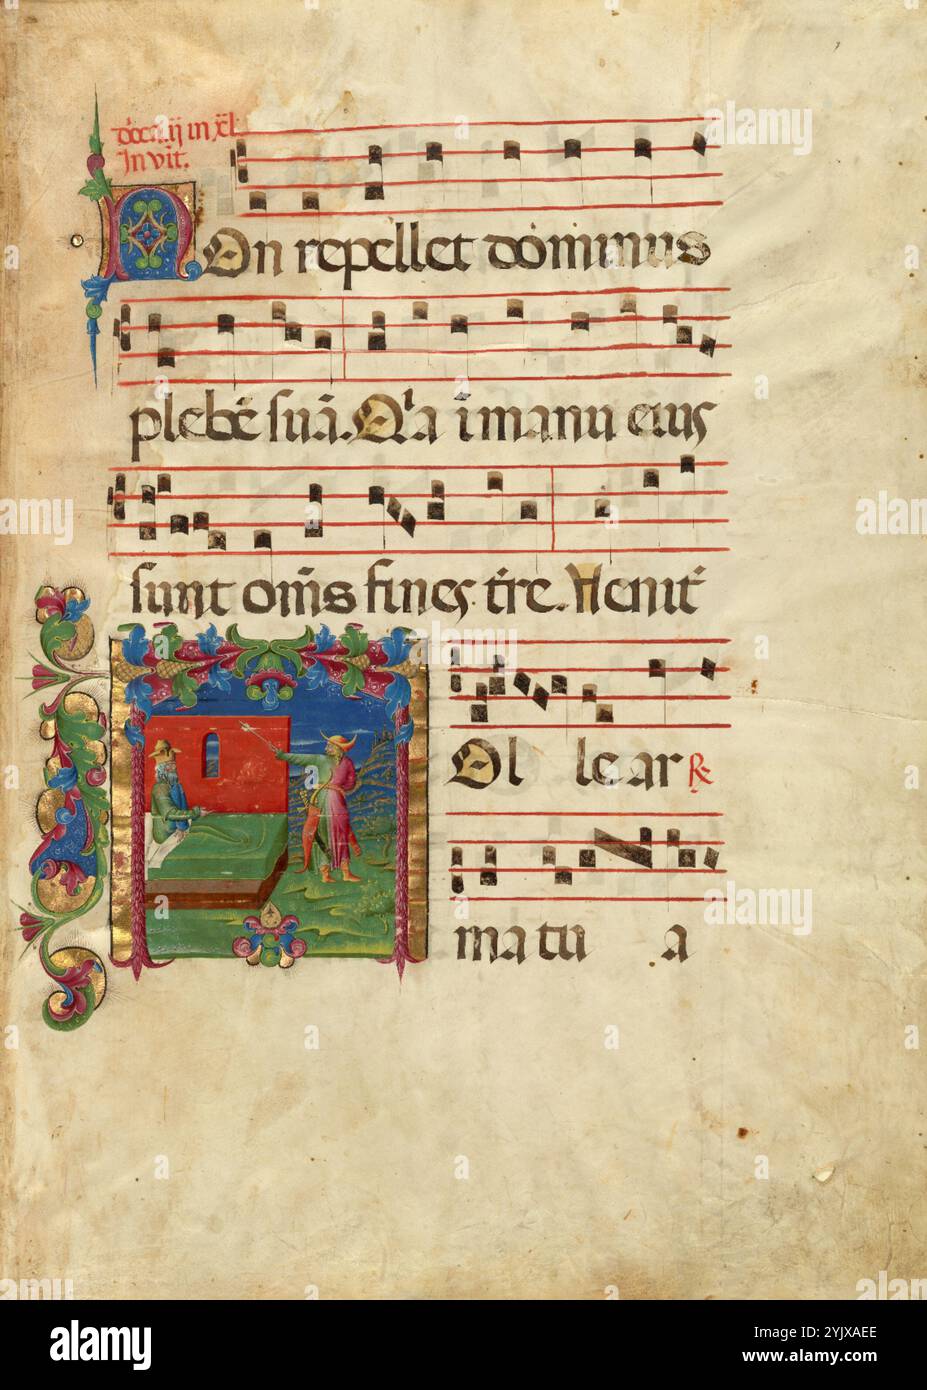 dn̄ca ij in xl̄.
Invit̄.
NOn repellet dominus
plebē suā. Qı̄a ı̄ manu eius
sunt om̄s fines t̄re. Uenit̄
Ol le ar ℟
ma tu a
alamy
Image ID: 2YJXAEE
www.alamy.com